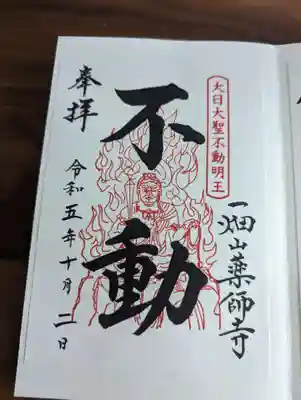 奉拝
大日大聖不動明王
不動
一畑山薬師寺
令和五年十月二日